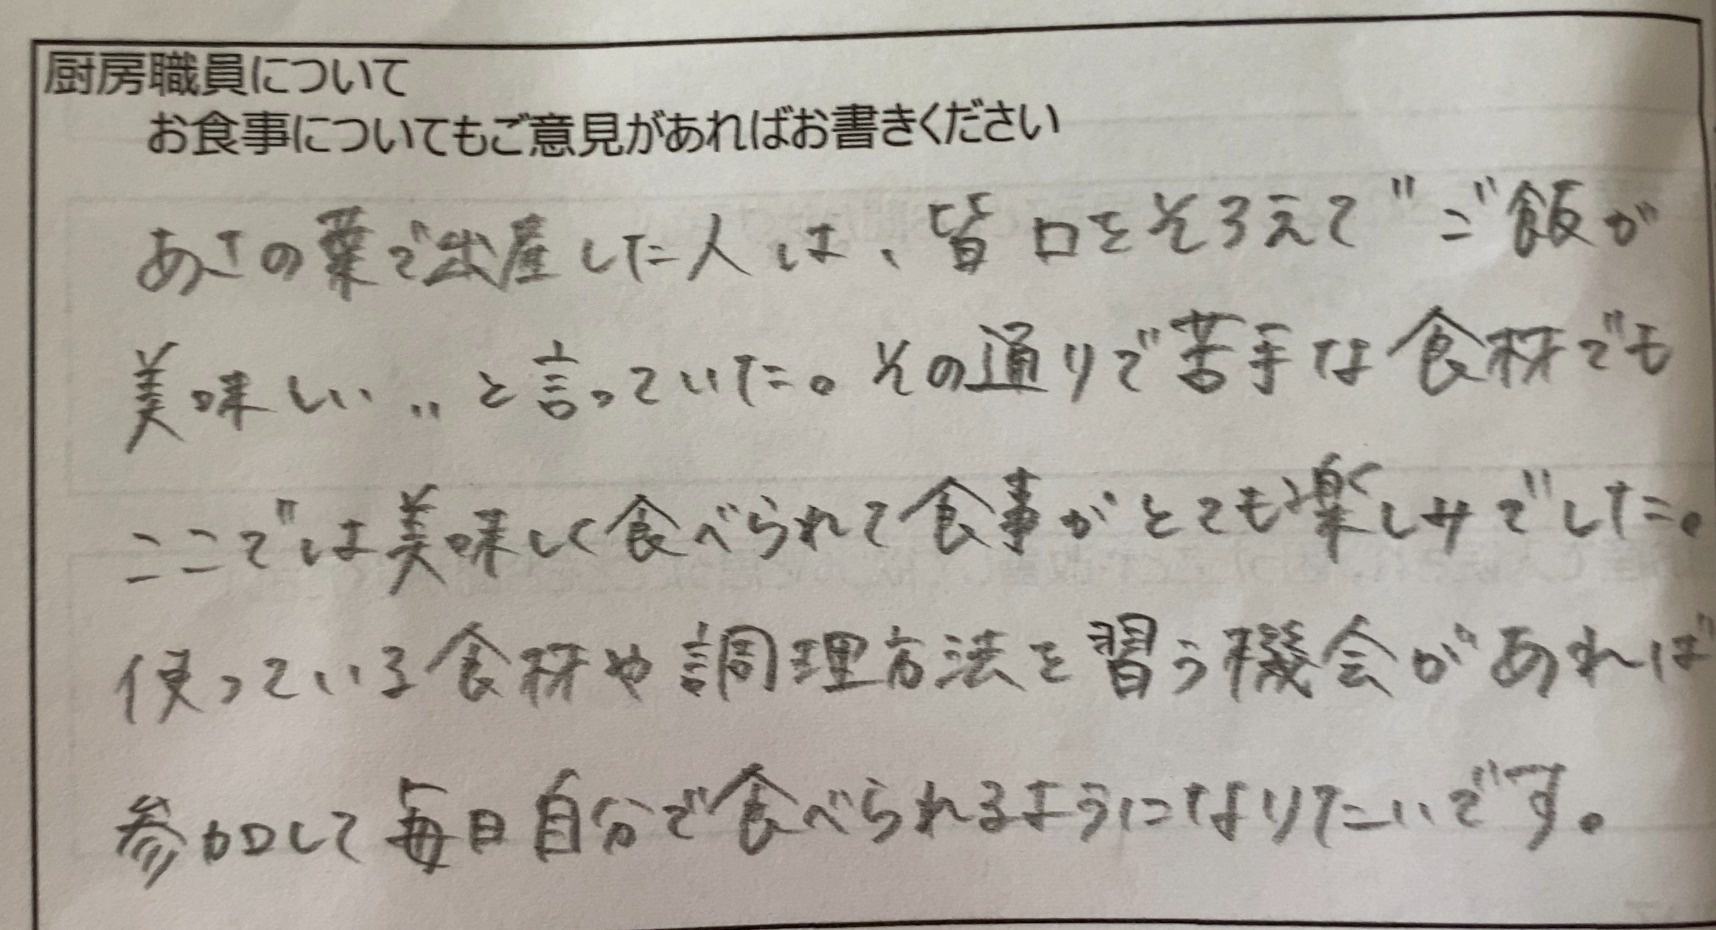 厨房職員について
お食事についてもご意見があればお書きください
あさの葉で出産した人は、皆口をそろえて"ご飯が
美味しい"と言っていた。その通りで苦手な食材でも
ここでは美味しく食べられて食事がとても楽しみでした。
使っている食材や調理方法を習う機会があれば
参加して毎日自分で食べられるようになりたいです。